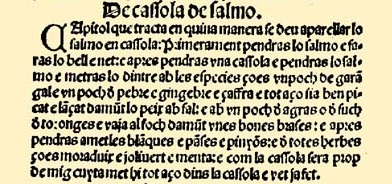 De cassola de salmo.
CApitol que tracta en quina manera se deu aparellar lo
salmo en cassola: Primerament pendras lo salmo e fa-
ras lo bell e net: e apres pendras vna cassola e pendras lo sal-
mo e metras lo dintre ab les especies ço es vn poch de garā
gal e vn poch ō pebre e gingebre e çaffra e tot aço sia ben pi-
cat e lāçat damūt lo peix ab sal: e ab vn poch ō agras o ō such
ō tarōges e vaja al foch damūt vnes bones brases: e apres
pendras ametles blāques e pāses e pinyōs: e ō totes herbes
ço es moraduix e joliuert e menta: e com la cassola sera prop
de mig cuyta met hi tot aço dins la cassola e vet fafet.